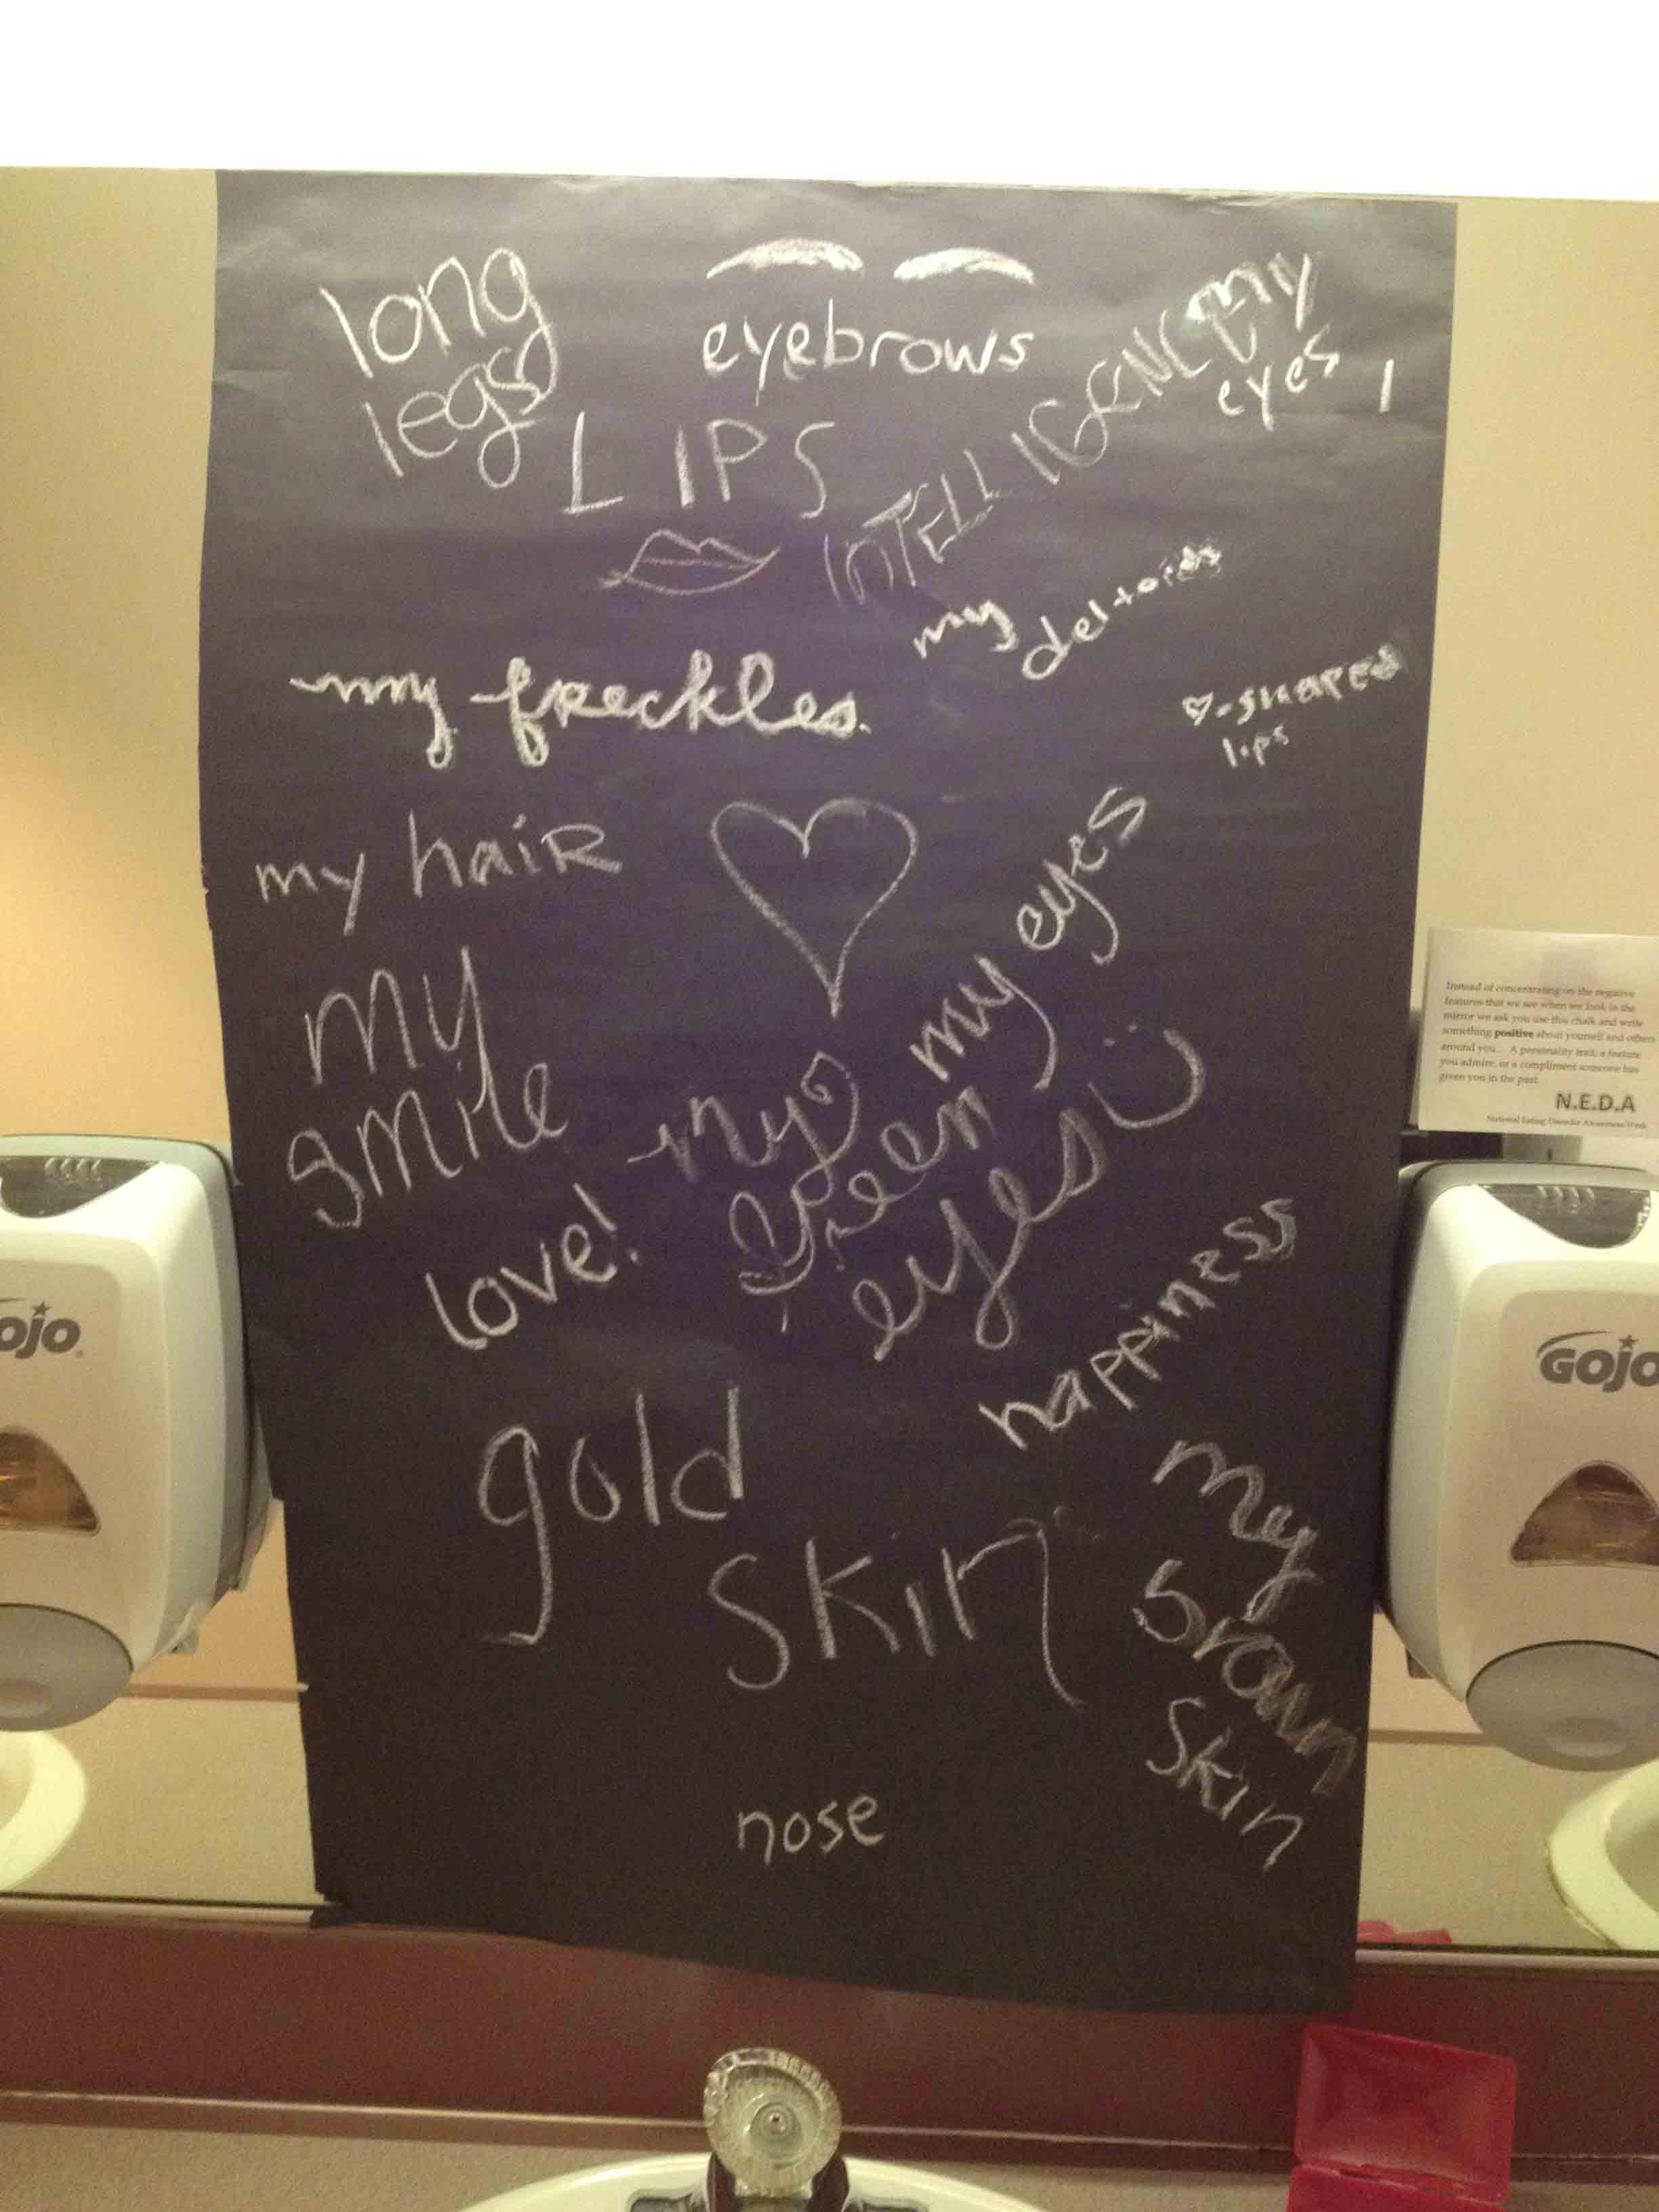 long
legs
eyebrows
INTELLIGENCE
my
eyes
LIPS
my
deltoids
my freckles.
♡-shaped
lips
my haiR
my eyes
my
smile
my
green
eyes
love!
happiness
gold
skin
my
brown
skin
nose
Instead of concentrating on the negative
features that we see when we look in the
mirror we ask you use this chalk and write
something positive about yourself and others
around you... A personality trait, a feature
you admire, or a compliment someone has
given you in the past.
N.E.D.A
National Eating Disorder Awareness Week
ojo
GOJO